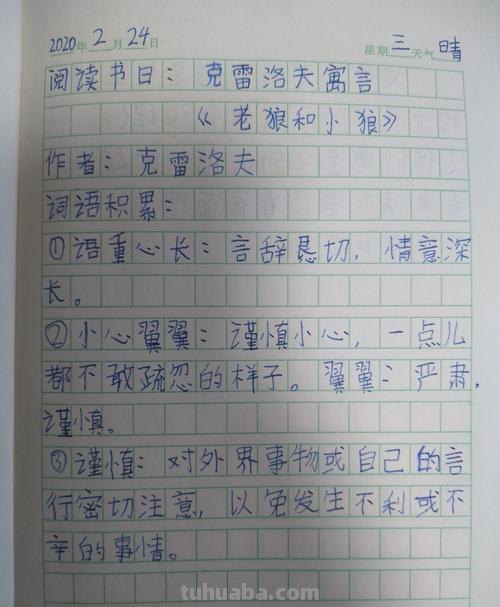 2020年2月24日 星期三 天气晴
阅读书目：克雷洛夫寓言
《老狼和小狼》
作者：克雷洛夫
词语积累：
①语重心长：言辞恳切，情意深
长。
②小心翼翼：谨慎小心，一点儿
都不敢疏忽的样子。翼翼：严肃，
谨慎。
③谨慎：对外界事物或自己的言
行密切注意，以免发生不利或不
幸的事情。
tuhuaba.com